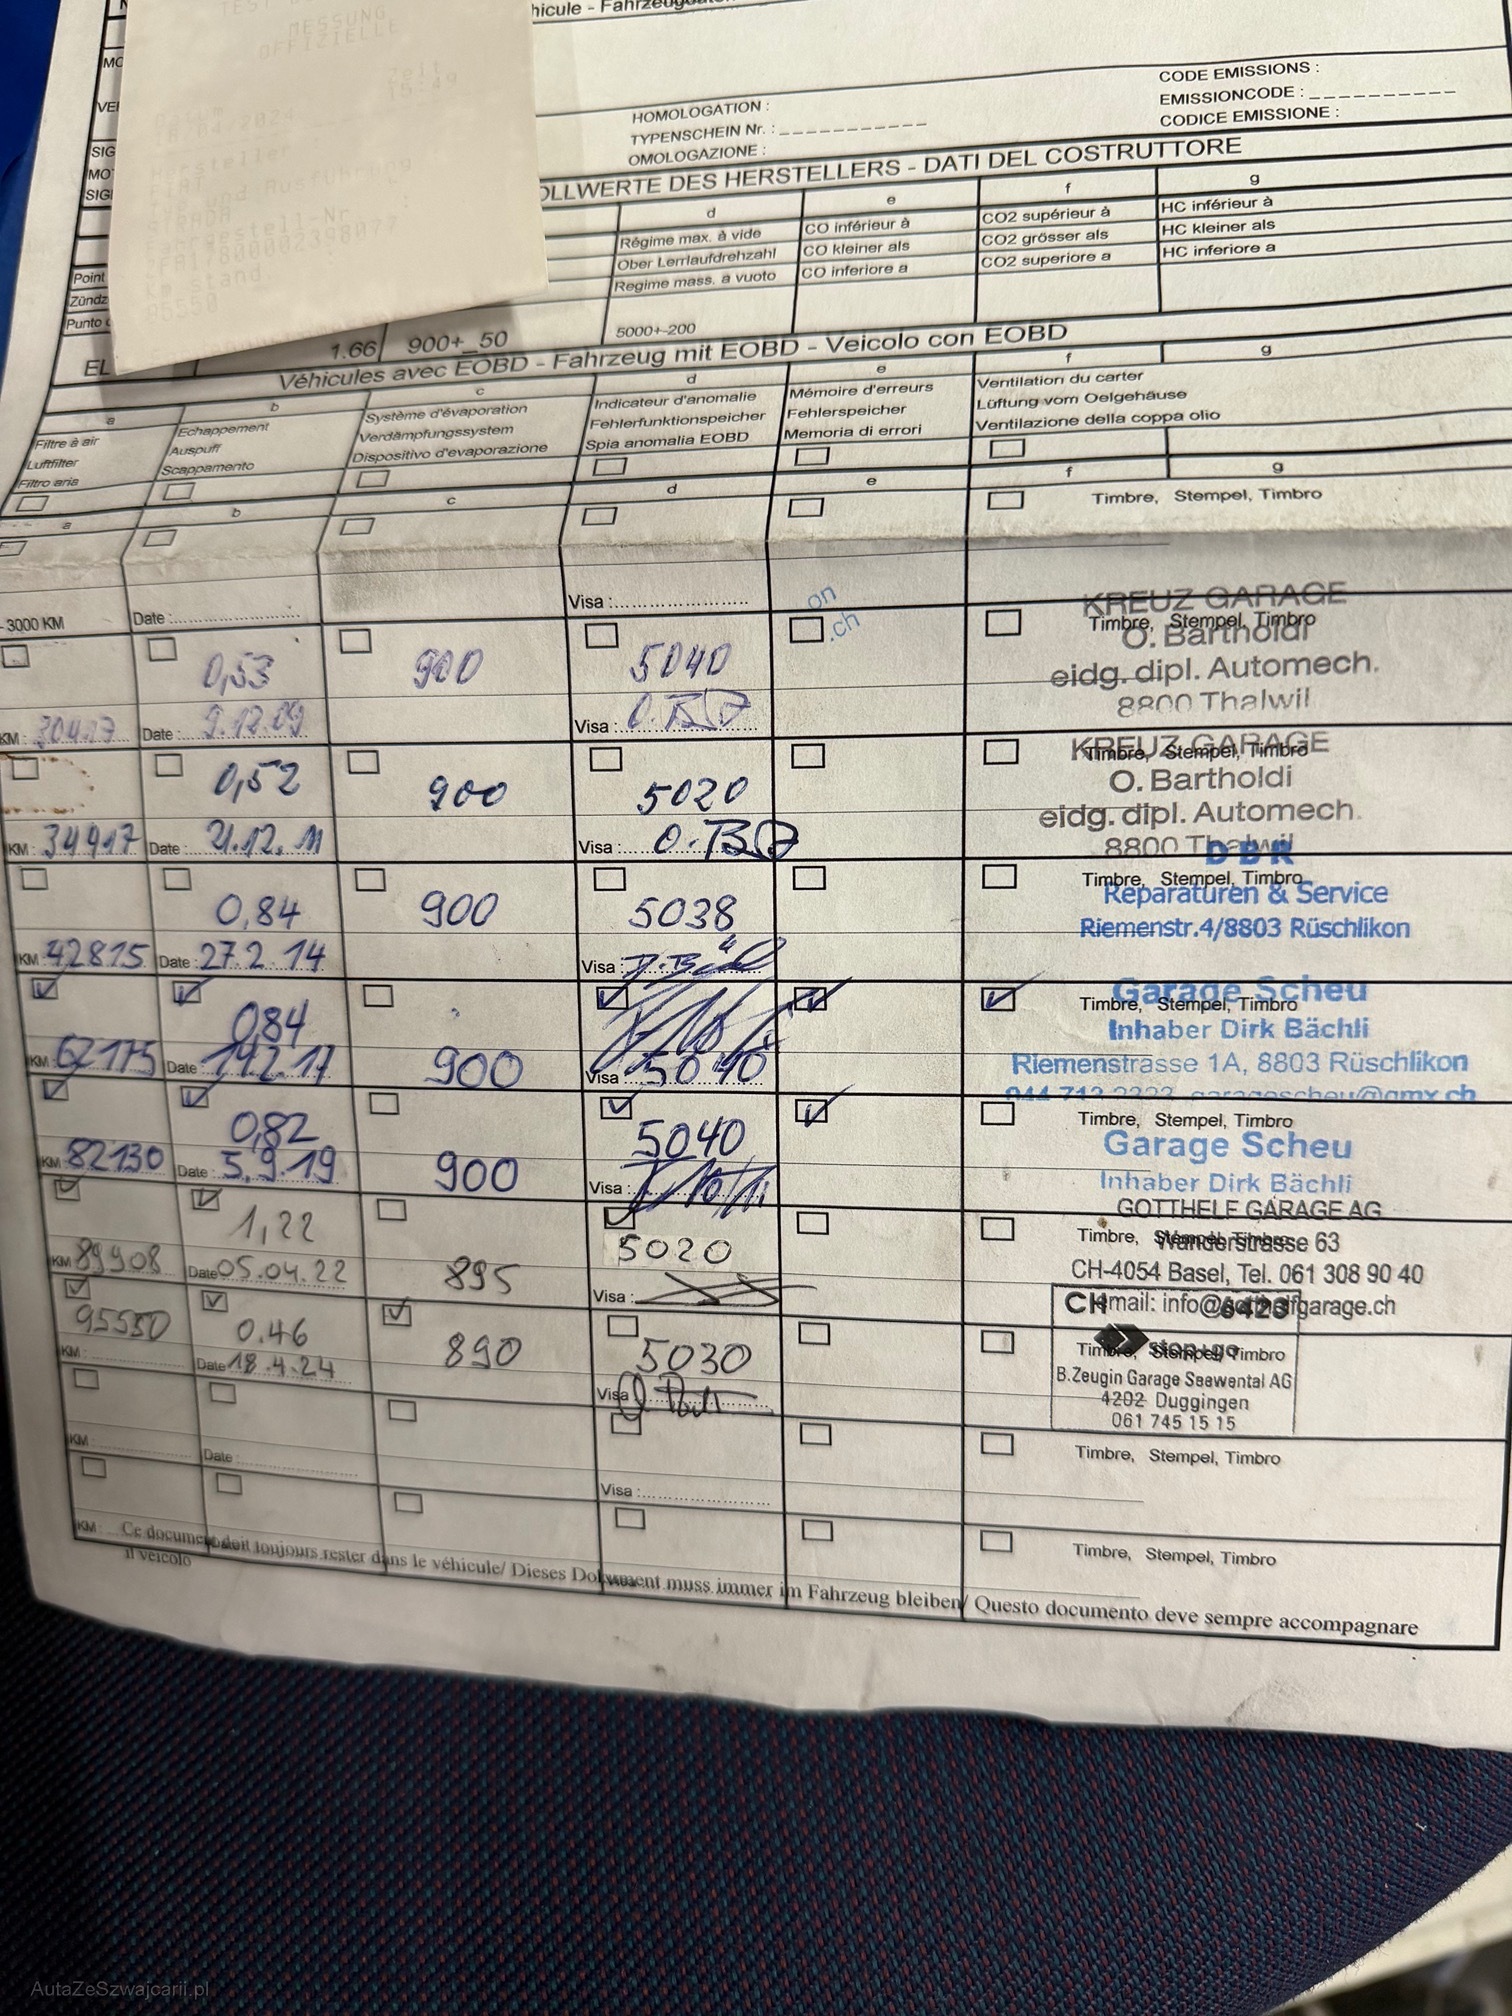 hicule - Fahrzeugdaten
MESSUNG
OFFIZIELLE
Zeit
15:49
18/04/2024
Hersteller
FIAT
und Ausführung
Fahrgestell-Nr.
Km-Stand
95550
HOMOLOGATION :
TYPENSCHEIN Nr. :
OMOLOGAZIONE :
CODE EMISSIONS :
EMISSIONCODE :
CODICE EMISSIONE :
OLLWERTE DES HERSTELLERS - DATI DEL COSTRUTTORE
d e f g
Régime max. à vide
Ober Lerrlaufdrehzahl
Regime mass. a vuoto
CO inférieur à
CO kleiner als
CO inferiore a
CO2 supérieur à
CO2 grösser als
CO2 superiore a
HC inférieur à
HC kleiner als
HC inferiore a
Point
Zündz
Punto
EL 1.66 900+_50 5000+-200
Véhicules avec EOBD - Fahrzeug mit EOBD - Veicolo con EOBD
a b c d e f g
Filtre à air
Luftfilter
Filtro aria
Echappement
Auspuff
Scappamento
Système d'évaporation
Verdämpfungssystem
Dispositivo d'evaporazione
Indicateur d'anomalie
Fehlerfunktionspeicher
Spia anomalia EOBD
Mémoire d'erreurs
Fehlerspeicher
Memoria di errori
Ventilation du carter
Lüftung vom Oelgehäuse
Ventilazione della coppa olio
a b c d e f g
Timbre, Stempel, Timbro
- 3000 KM Date : Visa :
on
.ch
0,53 900 5040
KM : 30417 Date : 9.12.09 Visa :
Timbre, Stempel, Timbro
KREUZ GARAGE
O. Bartholdi
eidg. dipl. Automech.
8800 Thalwil
0,52 900 5020
KM : 34917 Date : 21.12.11 Visa :
Timbre, Stempel, Timbro
KREUZ GARAGE
O. Bartholdi
eidg. dipl. Automech.
8800 Thalwil
0,84 900 5038
KM : 42815 Date : 27.2.14 Visa :
Timbre, Stempel, Timbro
DBR
Reparaturen & Service
Riemenstr.4/8803 Rüschlikon
0,84 900 5040
KM : 62175 Date : 14.2.17 Visa
Timbre, Stempel, Timbro
Garage Scheu
Inhaber Dirk Bächli
Riemenstrasse 1A, 8803 Rüschlikon
044 713 2222 garagescheu@gmx.ch
0,82 900 5040
KM : 82130 Date : 5.9.19 Visa :
Timbre, Stempel, Timbro
Garage Scheu
Inhaber Dirk Bächli
1,22 895 5020
KM 89908 Date 05.04.22 Visa :
Timbre, Stempel, Timbro
GOTTHELF GARAGE AG
Wanderstrasse 63
CH-4054 Basel, Tel. 061 308 90 40
Email: info@gotthelfgarage.ch
95550 0.46 890 5030
KM : Date 18.4.24 Visa
Timbre, Stempel, Timbro
CH 6423
stop+go
B.Zeugin Garage Seewental AG
4202 Duggingen
061 745 15 15
KM : Date : Visa :
Timbre, Stempel, Timbro
KM :
Timbre, Stempel, Timbro
Ce document doit toujours rester dans le véhicule/ Dieses Dokument muss immer im Fahrzeug bleiben/ Questo documento deve sempre accompagnare
il veicolo
AutaZeSzwajcarii.pl